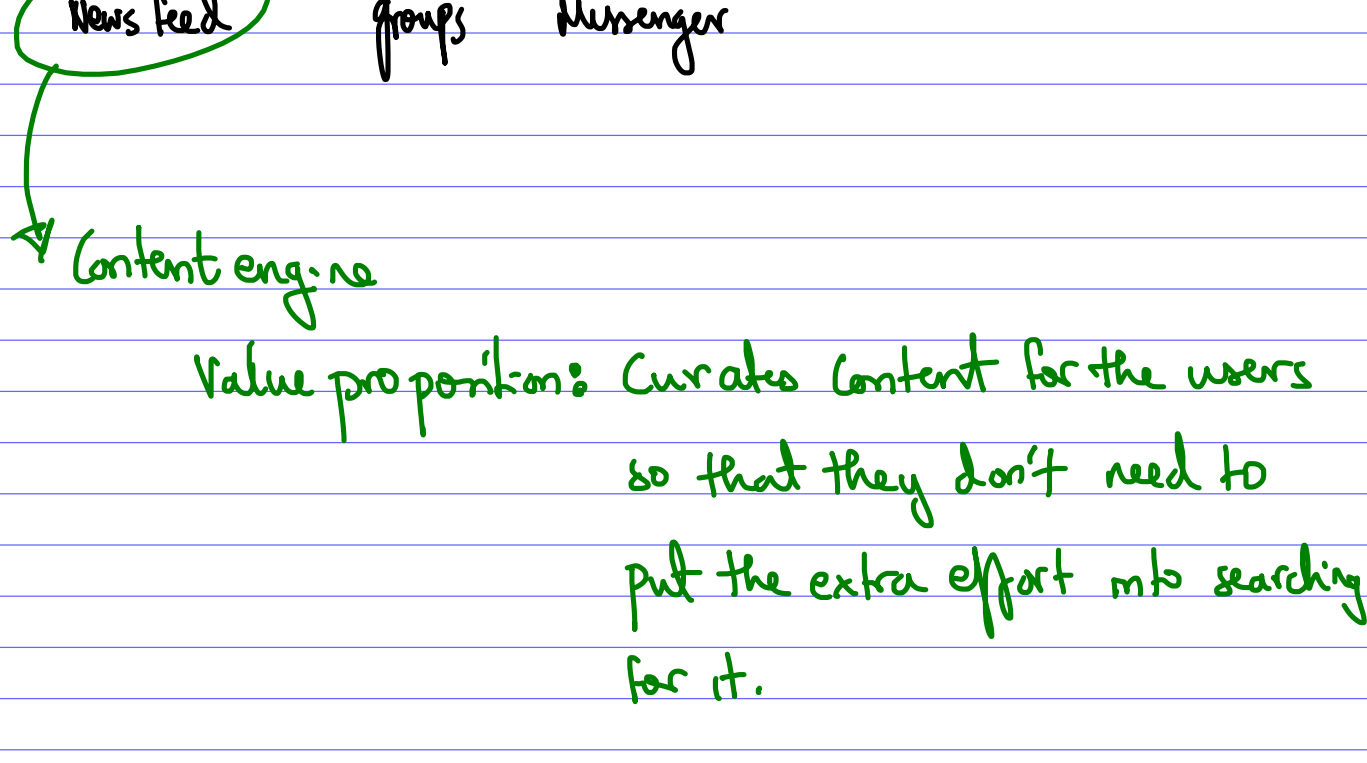 News Feed groups Messenger
Content engine
Value proposition: Curates Content for the users
so that they don't need to
put the extra effort into searching
for it.